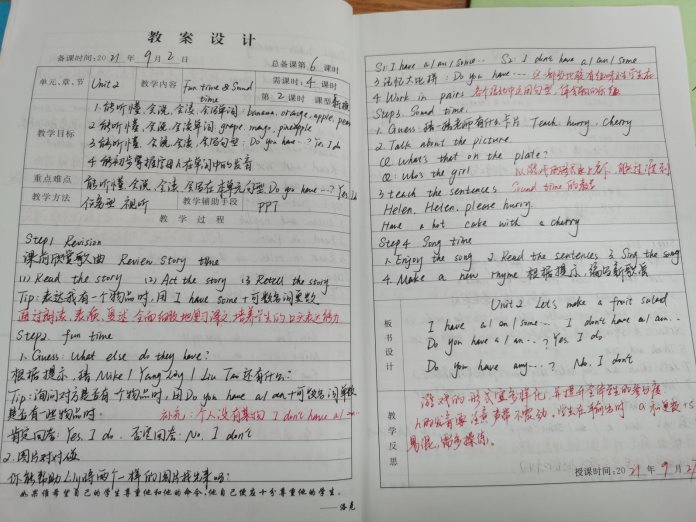 教案设计
备课时间:2021年9月2日
总备课第6课时
单元、章、节 Unit 2
教学内容 Fun time & Sound time
需课时:4课时
第2课时 课型 新授
教学目标
1.能听懂,会说,会读,会写单词:banana, orange, apple, pear
2.能听懂,会说,会读单词:grape, mango, pineapple
3.能听懂,会说,会读,会写句型:Do you have...? Yes, I do
4.能初步掌握字母h在单词中的发音
重点难点
能听懂,会说,会读,会写在本单元句型 Do you have...? Yes, I do
教学方法
任务型 视听
教学辅助手段
PPT
教学过程
Step1 Revision
课前欣赏歌曲 Review Story time
(1) Read the story (2) Act the story (3) Retell the story
Tip:表达我有一个物品时,用 I have some+可数名词复数
通过朗读、表演、复述,全面细致地重了课文,培养学生的口头表达能力
Step2. fun time
1. Guess: What else do they have?
根据提示,猜 Mike | Yang Ling | Liu Tao 还有什么?
Tip:询问对方是否有一个物品时,用Do you have a/an+可数名词单数
是否有一些物品时。
补充:个人没有某物 I don't have a/an
肯定回答:Yes, I do. 否定回答:No, I don't
2.图片对对碰
你能帮助Liu将两个一样的图片找出来吗?
如果你希望自己的学生尊重他和他的命令,他自己便应十分尊重他的学生。
——洛克
S1: I have a/an/some... S2: I don't have a/an/some
3 记忆大比拼:Do you have...
4 Work in pairs
各个活动中运用句型,
Step3. Sound time.
1. Guess:猜一猜老师有什么卡片 Teach hurry, cherry
2. Talk about the picture.
Q: What's that on the plate?
Q: Who's the girl
3 teach the sentences
Sound time的教学
Helen, Helen, please hurry
Have a hot cake with a cherry
Step4 Song time
1. Enjoy the song 2. Read the sentences 3 Sing the song
4. Make a new rhyme 根据提示,编出新歌谣
板书设计
Unit 2 Let's make a fruit salad
I have a/an/some... I don't have a/an...
Do you have a/an...? Yes. I do
Do you have any...? No. I don't
教学反思
游戏的形式宜多样化,并提升全体学生的参与度
h的发音要注意声带不震动。学生在书写出时
易混,需多操练。
授课时间:2021年9月2日